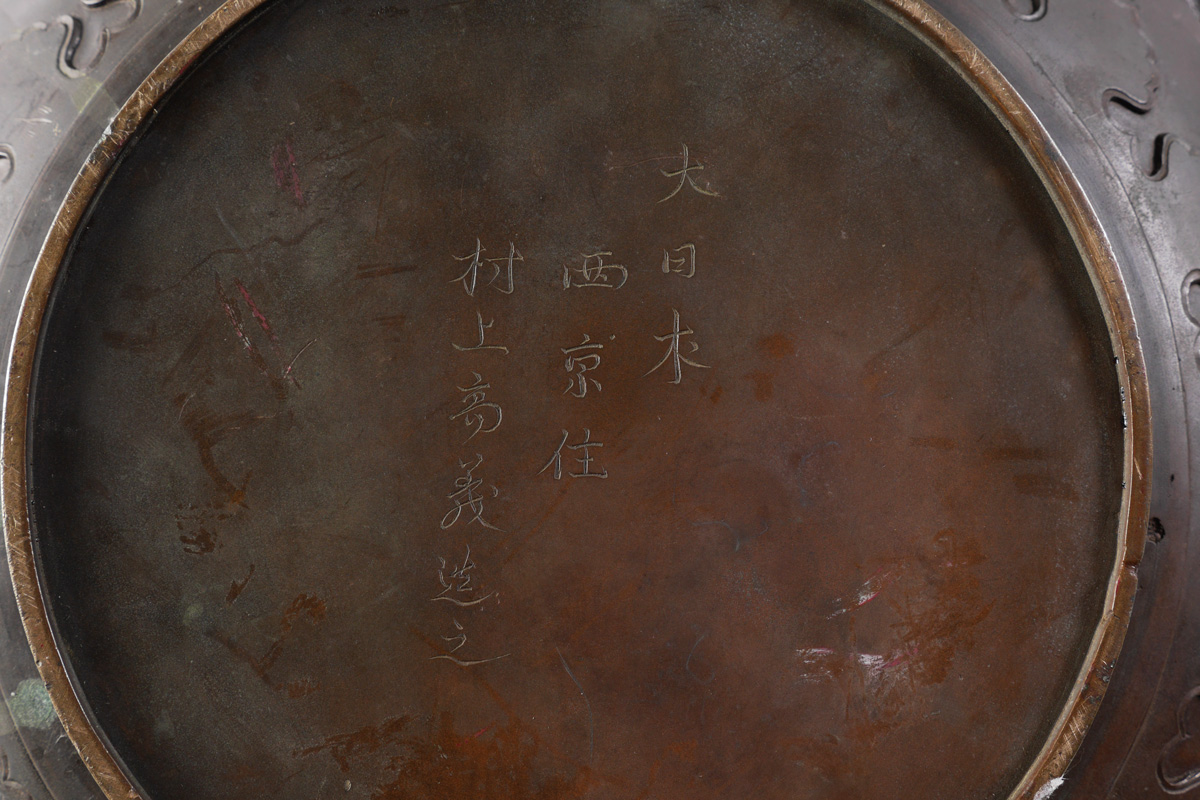 大日本
西京住
村上高義造之